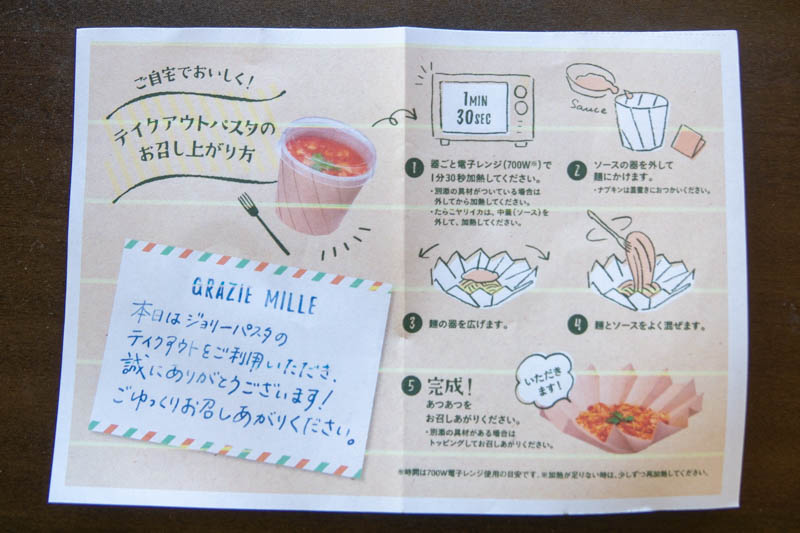 ご自宅でおいしく!
テイクアウトパスタの
お召し上がり方
GRAZIE MILLE
本日はジョリーパスタの
テイクアウトをご利用いただき、
誠にありがとうございます!
ごゆっくりお召しあがりください。
1 MIN
30 SEC
1 器ごと電子レンジ(700W※)で
1分30秒加熱してください。
・別添の具材がついている場合は
外してから加熱してください。
・たらこヤリイカは、中蓋(ソース)を
外して、加熱してください。
Sauce
2 ソースの器を外して
麺にかけます。
・ナプキンは器置きにおつかいください。
3 麺の器を広げます。
4 麺とソースをよく混ぜます。
5 完成!
あつあつを
お召しあがりください。
・別添の具材がある場合は
トッピングしてお召しあがりください。
いただき
ます!
※時間は700W電子レンジ使用の目安です。※加熱が足りない時は、少しずつ再加熱してください。